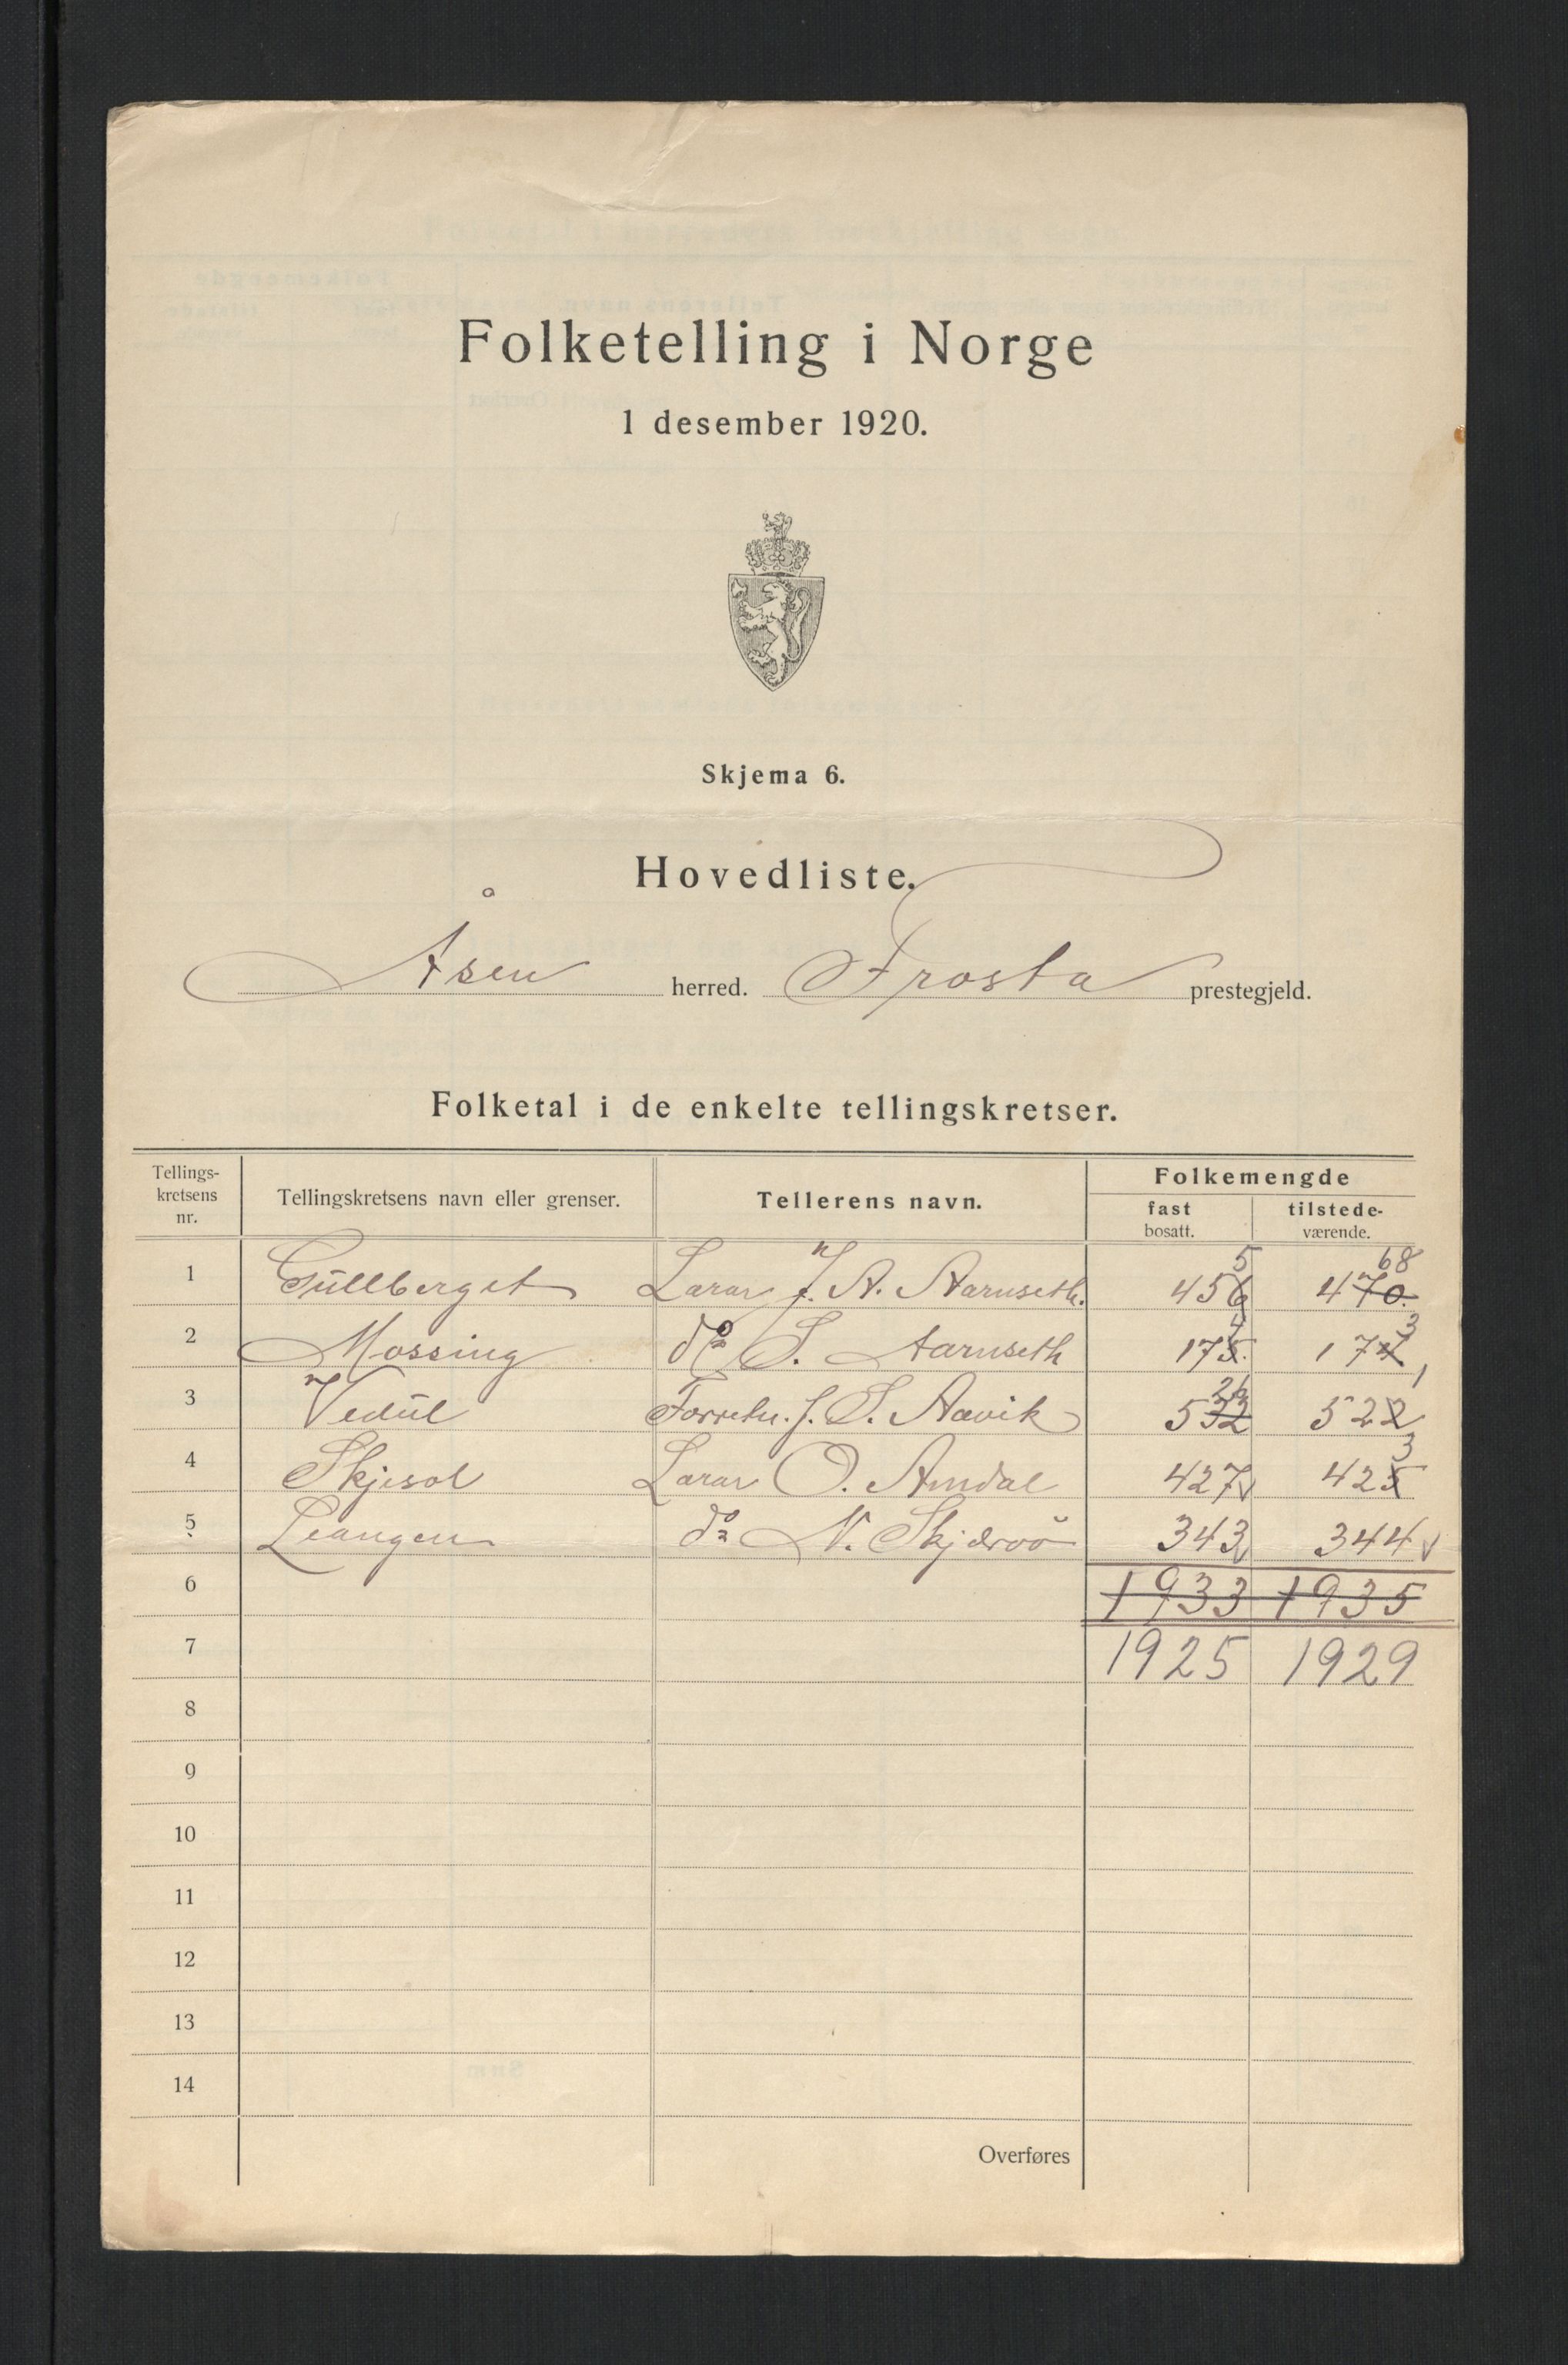 Folketelling i Norge
1 desember 1920.
Skjema 6.
Hovedliste.
Åsen herred. Frosta prestegjeld.
Folketal i de enkelte tellingskretser.
Tellings-kretsens nr. Tellingskretsens navn eller grenser. Tellerens navn. Folkemengde
fast bosatt. tilstede-værende.
5 68
1 Gullberget Lærar J. A. Aarnseth. 456 470.
4 3
2 Mossing do S. Aarnseth 175. 174
26 1
3 Vedul Forretn. J. S. Aavik 532 522
3
4 Skjesol Lærar O. Amdal 427 425
5 Leangen do N. Skjærvö 343 344
6 1933 1935
7 1925 1929
8
9
10
11
12
13
14
Overføres